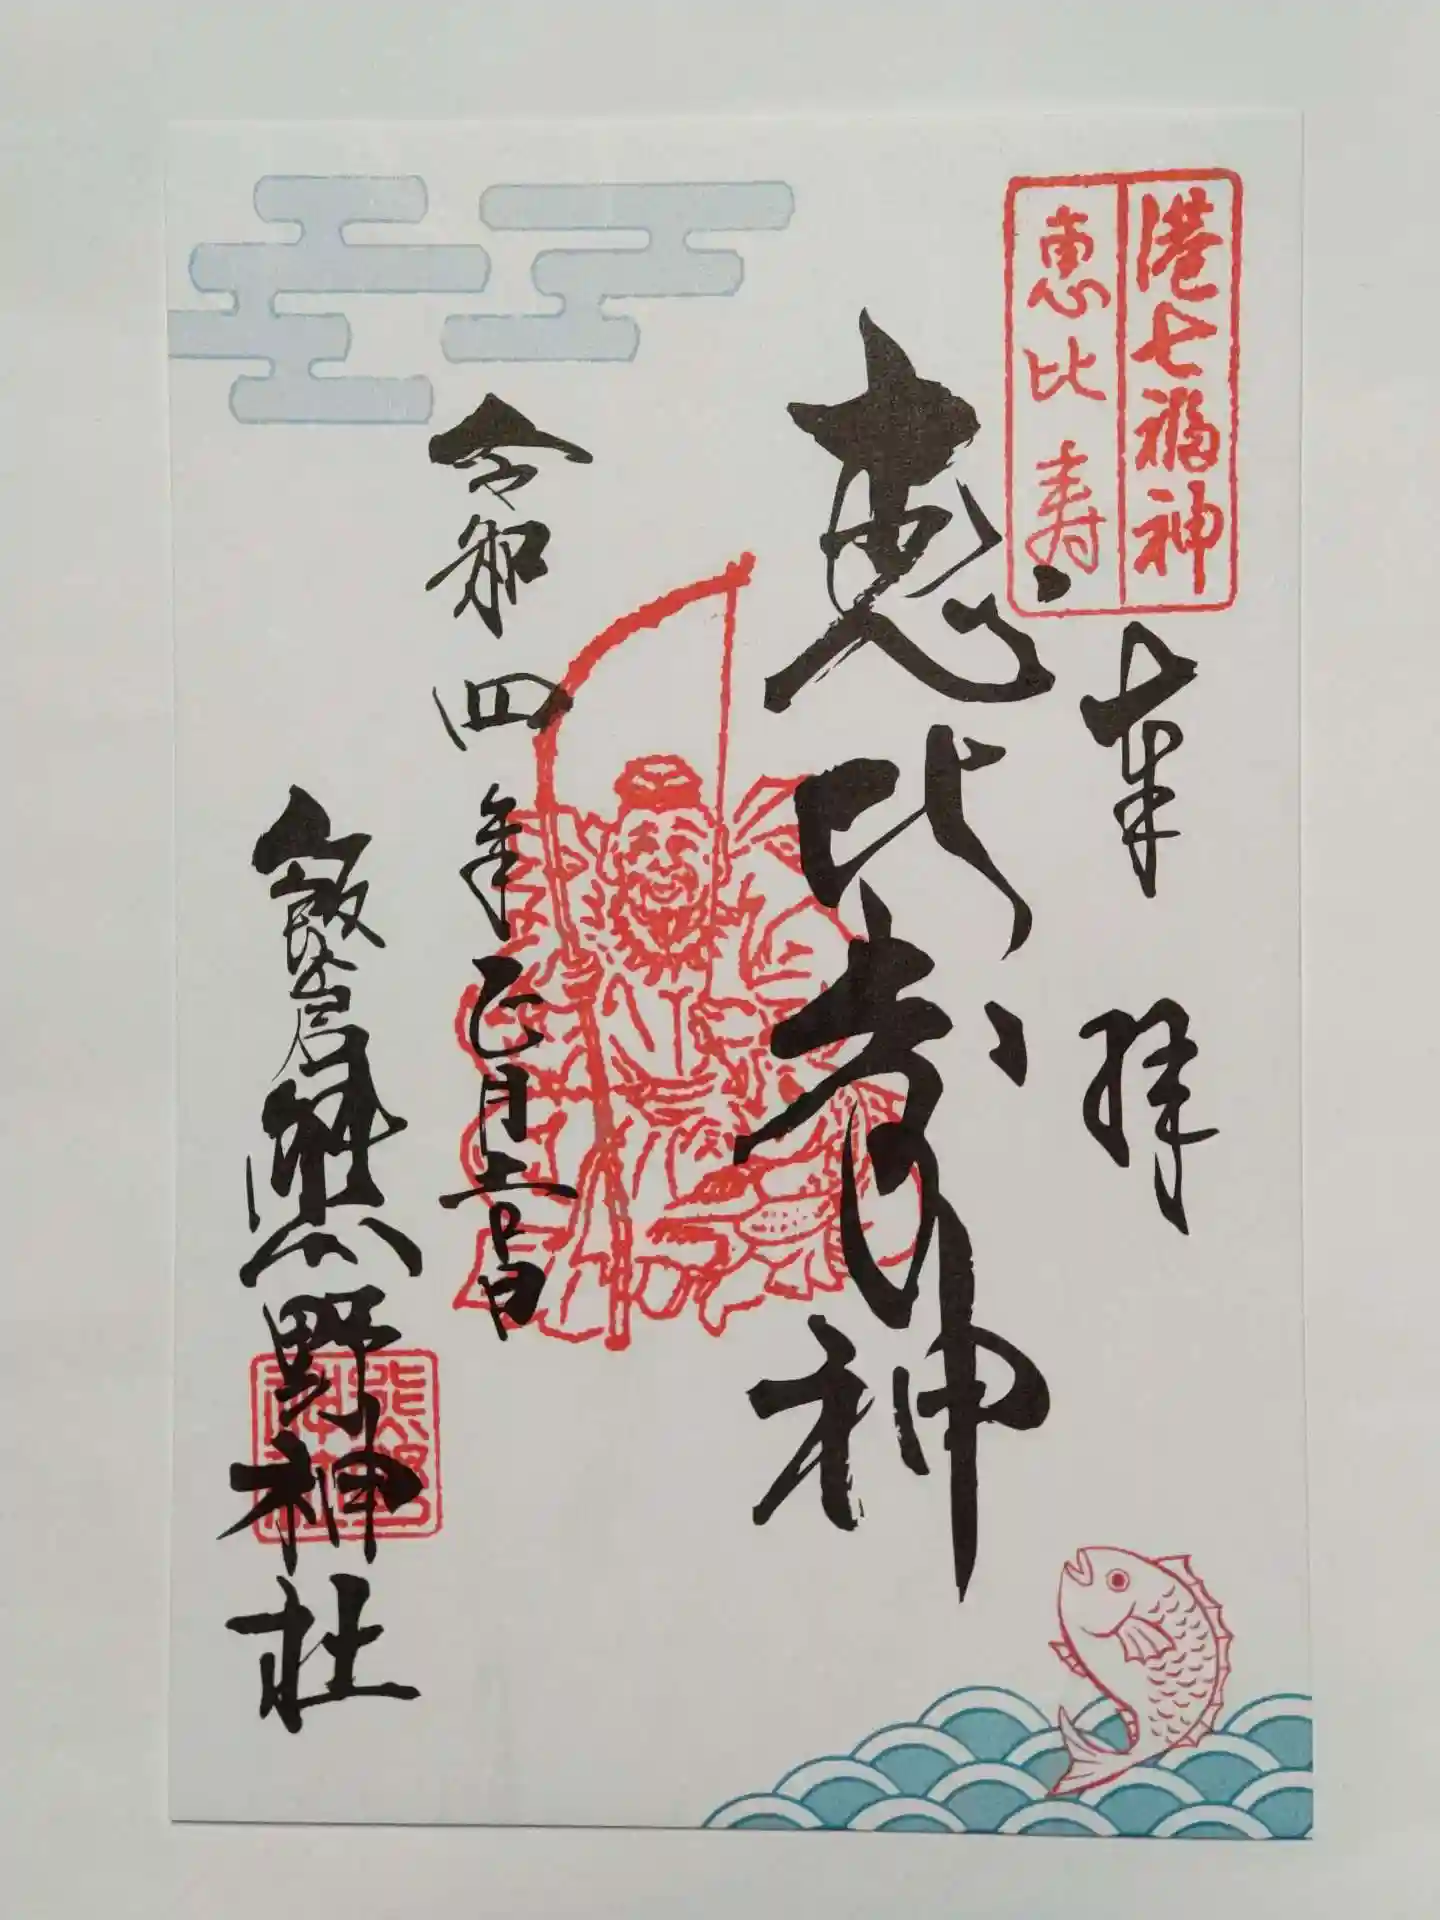 港七福神
恵比寿
奉拝
恵比寿神
令和四年正月十一日
飯倉熊野神社